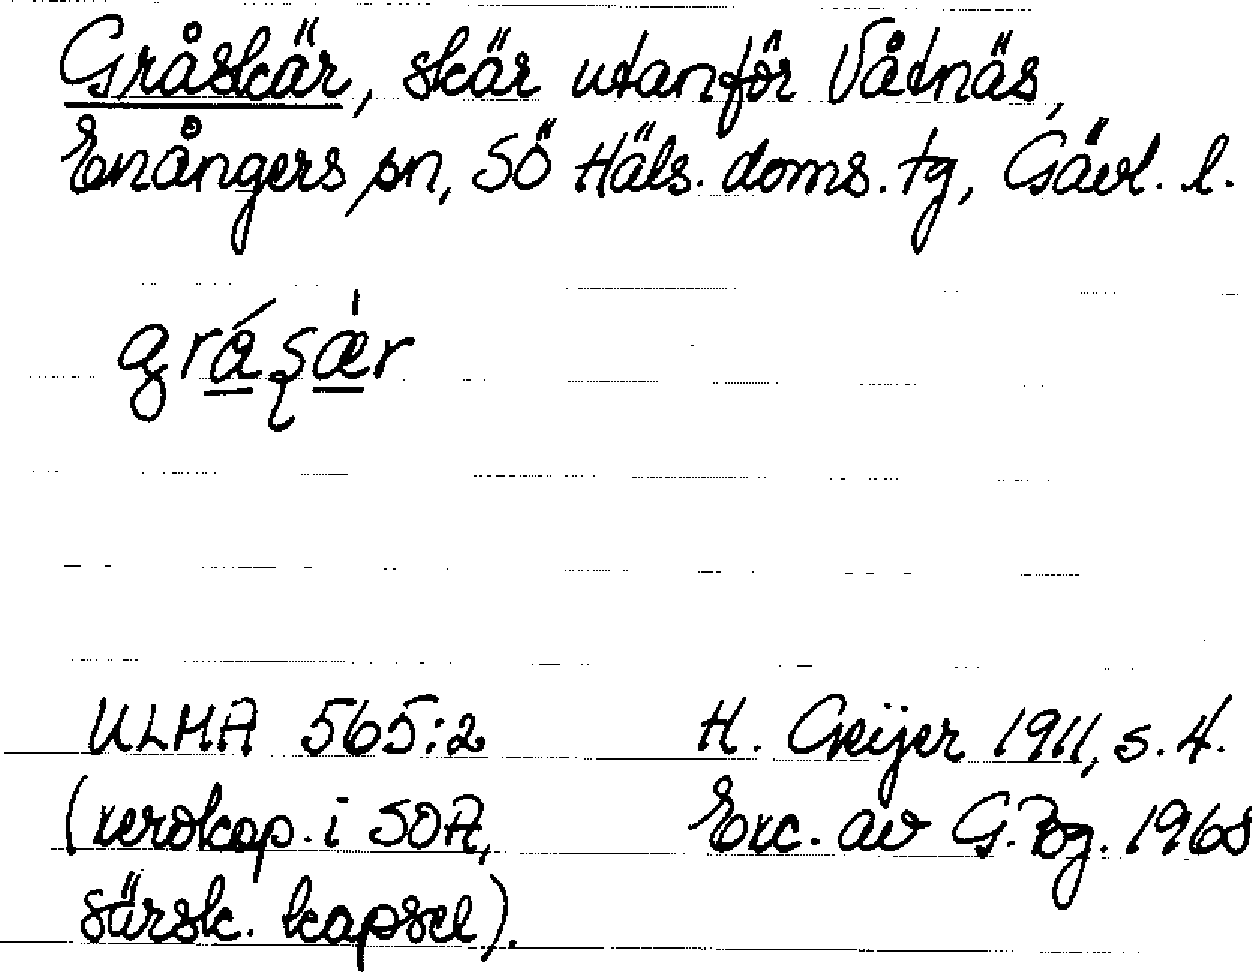 Gråskär, skär utanför Våtnäs,
Enångers sn, SÖ Häls. doms. tg, Gävl. l.
grǻʂǽr
ULMA 565:2 H. Geijer 1911, s. 4.
(xeroxkop. i SOA, Exc. av G. Bg. 1968
särsk. kapsel).